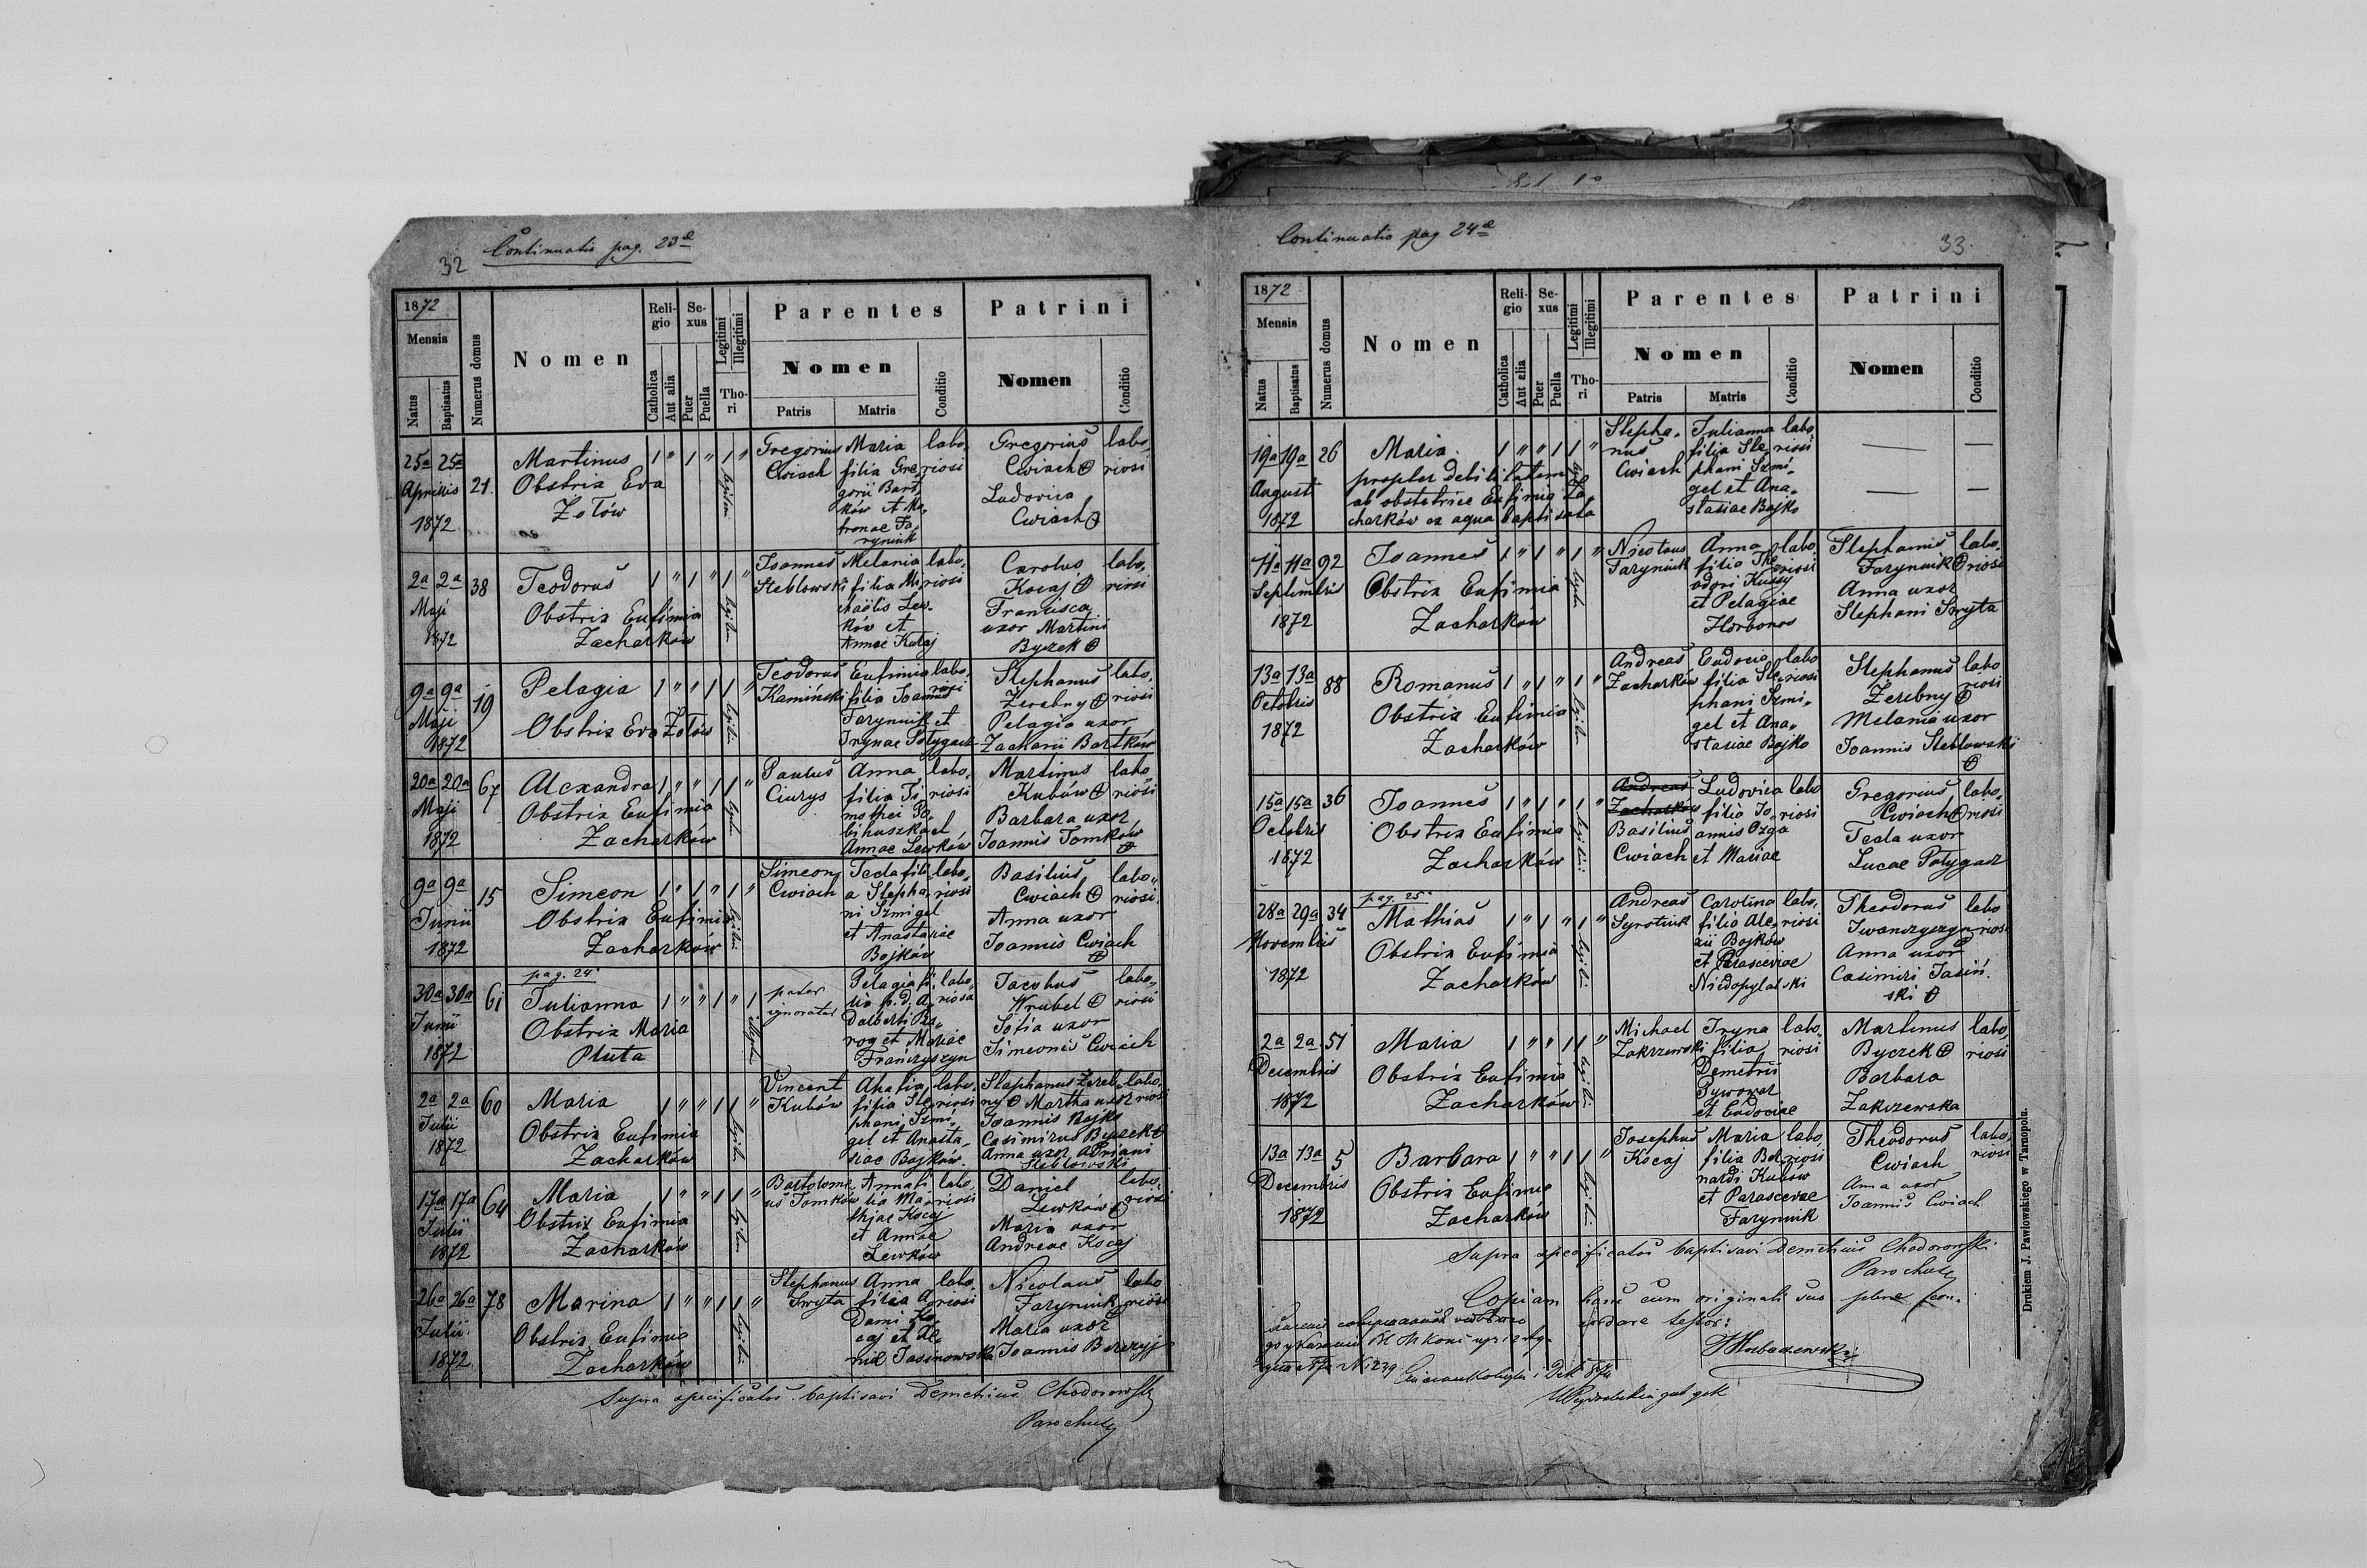 32
Continuatio pag. 23
1872
Mensis
Natus
Baptisatus
Numerus domus
Nomen
Religio
Catholica
Aut alia
Sexus
Puer
Puella
Legitimi
Illegitimi
Thori
Parentes
Nomen
Patris
Matris
Conditio
Patrini
Nomen
Conditio
25a 25a Aprilis 1872
21.
Martinus
Obstrix Eva
Zotów
1 " 1 " 1 "
legitimi
Gregorius
Cwiach
Maria
filia Gre
gorii Bart
ków et Ma
tronae Fa
ryniuk
labo
riosi
Gregorius
Cwiach
Ludovica
Cwiach
labo
riosi
2a 2a Maji 1872
38
Teodorus
Obstrix Eufimia
Zacharków
1 " 1 " 1 "
Joannes
Steblowski
Melania
filia Mi
chaëlis Lew
ków et
Annae Kutaj
labo,
riosi
Carolus
Kocaj
Francisca
uxor Martini
Byczek
labo,
riosi
9a 9a Maji 1872
19
Pelagia
Obstrix Eva Zotów
1 " " 1 1 "
Teodorus
Kamiński
Eufimia
filia Joannis
Faryniuk et
Irynae Potygacz
labo,
riosi
Stephanus
Zerebny
Pelagia uxor
Zacharii Bartków
labo,
riosi
20a 20a Maji 1872
67
Alexandra
Obstrix Eufimia
Zacharków
1 " " 1 1 "
Paulus
Ciurys
Anna
filia Ti
mothei Po
bihuszka et
Annae Lewków
labo,
riosi
Martinus
Kubów
Barbara uxor
Joannis Tomków
labo
riosi
9a 9a Junii 1872
15
Simeon
Obstrix Eufimia
Zacharków
1 " 1 " 1 "
Simeon
Cwiach
Tecla fili
a Stepha
ni Szmigel
et Anastasiae
Bojków
labo,
riosi
Basilius
Cwiach
Anna uxor
Joannis Cwiach
labo,
riosi
30a 30a Junii 1872
61
pag. 24
Julianna
Obstrix Maria
Pluta
1 " " 1 " 1
pater
ignoratur
Pelagia fi
lia p.d. A
dalberti Ba
rog et Mariae
Franczyszyn
labo,
riosa
Jacobus
Wrubel
Sofia uxor
Simeonis Cwiach
labo,
riosi
2a 2a Julii 1872
60
Maria
Obstrix Eufimia
Zacharków
1 " " 1 1 "
Vincent
Kubów
Ahafia
filia Ste
phani Szmi
gel et Anasta
siae Bojków.
labo,
riosi
Stephanus Zereb
ny Martha uxor
Joannis Bojko
Casimirus Byczek
Anna uxor Adriani
Steblowski
labo,
riosi
17a 17a Julii 1872
64
Maria
Obstrix Eufimia
Zacharków
1 " " 1 1 "
Bartolome
us Tomków
Anna fi
lia Ma
thiae Kocaj
et Annae
Lewków
labo,
riosi
Daniel
Lewków
Maria uxor
Andreae Kocaj
labo,
riosi
26a 26a Julii 1872
78
Marina
Obstrix Eufimia
Zacharków
1 " " 1 1 "
Stephanus
Swyta
Anna
filia A
Dami Ko
caj et
Jasinowska
labo,
riosi
Nicolaus
Faryniuk
Maria uxor
Joannis Berezyj
labo
riosi
Supra specificatos baptisavi Demetrius Chodorowski
Parochus
Continuatio pag 24
33.
1872
Mensis
Natus
Baptisatus
Numerus domus
Nomen
Religio
Catholica
Aut alia
Sexus
Puer
Puella
Legitimi
Illegitimi
Thori
Parentes
Nomen
Patris
Matris
Conditio
Patrini
Nomen
Conditio
19a 19a August 1872
26
Maria
propter debilitatem
ab obstetrice Eufimia Za
charków ex aqua baptisata
1 " " 1 1 "
Stepha
nus
Cwiach
Julianna
filia Ste
phani Szmi
gel et Ana
stasiae Bojko
labo
riosi
11a 11a Septembris 1872
92
Joannes
Obstrix Eufimia
Zacharków
1 " 1 " 1 "
Nicolaus
Faryniuk
Anna
filia The
odori Kussy
et Pelagiae
Horbonos
labo
riosi
Stephanus
Faryniuk
Anna uxor
Stephani Swyta
labo,
riosi
13a 13a Octobris 1872
88
Romanus
Obstrix Eufimia
Zacharków
1 " 1 " 1 "
Andreas
Zacharków
Eudocia
filia Ste
phani Szmi
gel et Ana
stasiae Bojko
labo
riosi
Stephanus
Zerebny
Melania uxor
Joannis Steblowski
labo
riosi
15a 15a Octobris 1872
36
Joannes
Obstrix Eufimia
Zacharków
1 " 1 " 1 "
Andreas
Zacharków
Basilius
Cwiach
Ludovica
filia Jo
annis Ozga
et Mariae
labo
riosi
Gregorius
Cwiach
Tecla uxor
Lucae Potygacz
labo,
riosi
28a 29a Novembris 1872
34
pag. 25
Mathias
Obstrix Eufimia
Zacharków
1 " 1 " 1 "
Andreas
Syrotiuk
Carolina
filia Ale
xii Bojków
et Parasceviae
Niedopytalski
labo,
riosi
Theodorus
Iwanczyszyn
Anna uxor
Casimiri Jasiń
ski
labo
riosi
2a 2a Decembris 1872
51
Maria
Obstrix Eufimia
Zacharków
1 " " 1 1 "
Michael
Zakrzewski
Iryna
filia
Demetrii
Pywowar
et Eudociae
labo,
riosi
Martinus
Byczek
Barbara
Zakrzewska
labo,
riosi
13a 13a Decembris 1872
5
Barbara
Obstrix Eufimie
Zacharków
1 " " 1 1 "
Josephus
Kocaj
Maria
filia Ber
nardi Kubów
et Parascevae
Faryniuk
labo,
riosi
Theodorus
Cwiach
Anna uxor
Joannis Cwiach
labo,
riosi
Supra specificatos baptisavi Demetrius Chodorowski
Parochus
Copiam hanc cum originali suo plene con
cordare testor:
Drukiem J. Pawłowskiego w Tarnopolu.